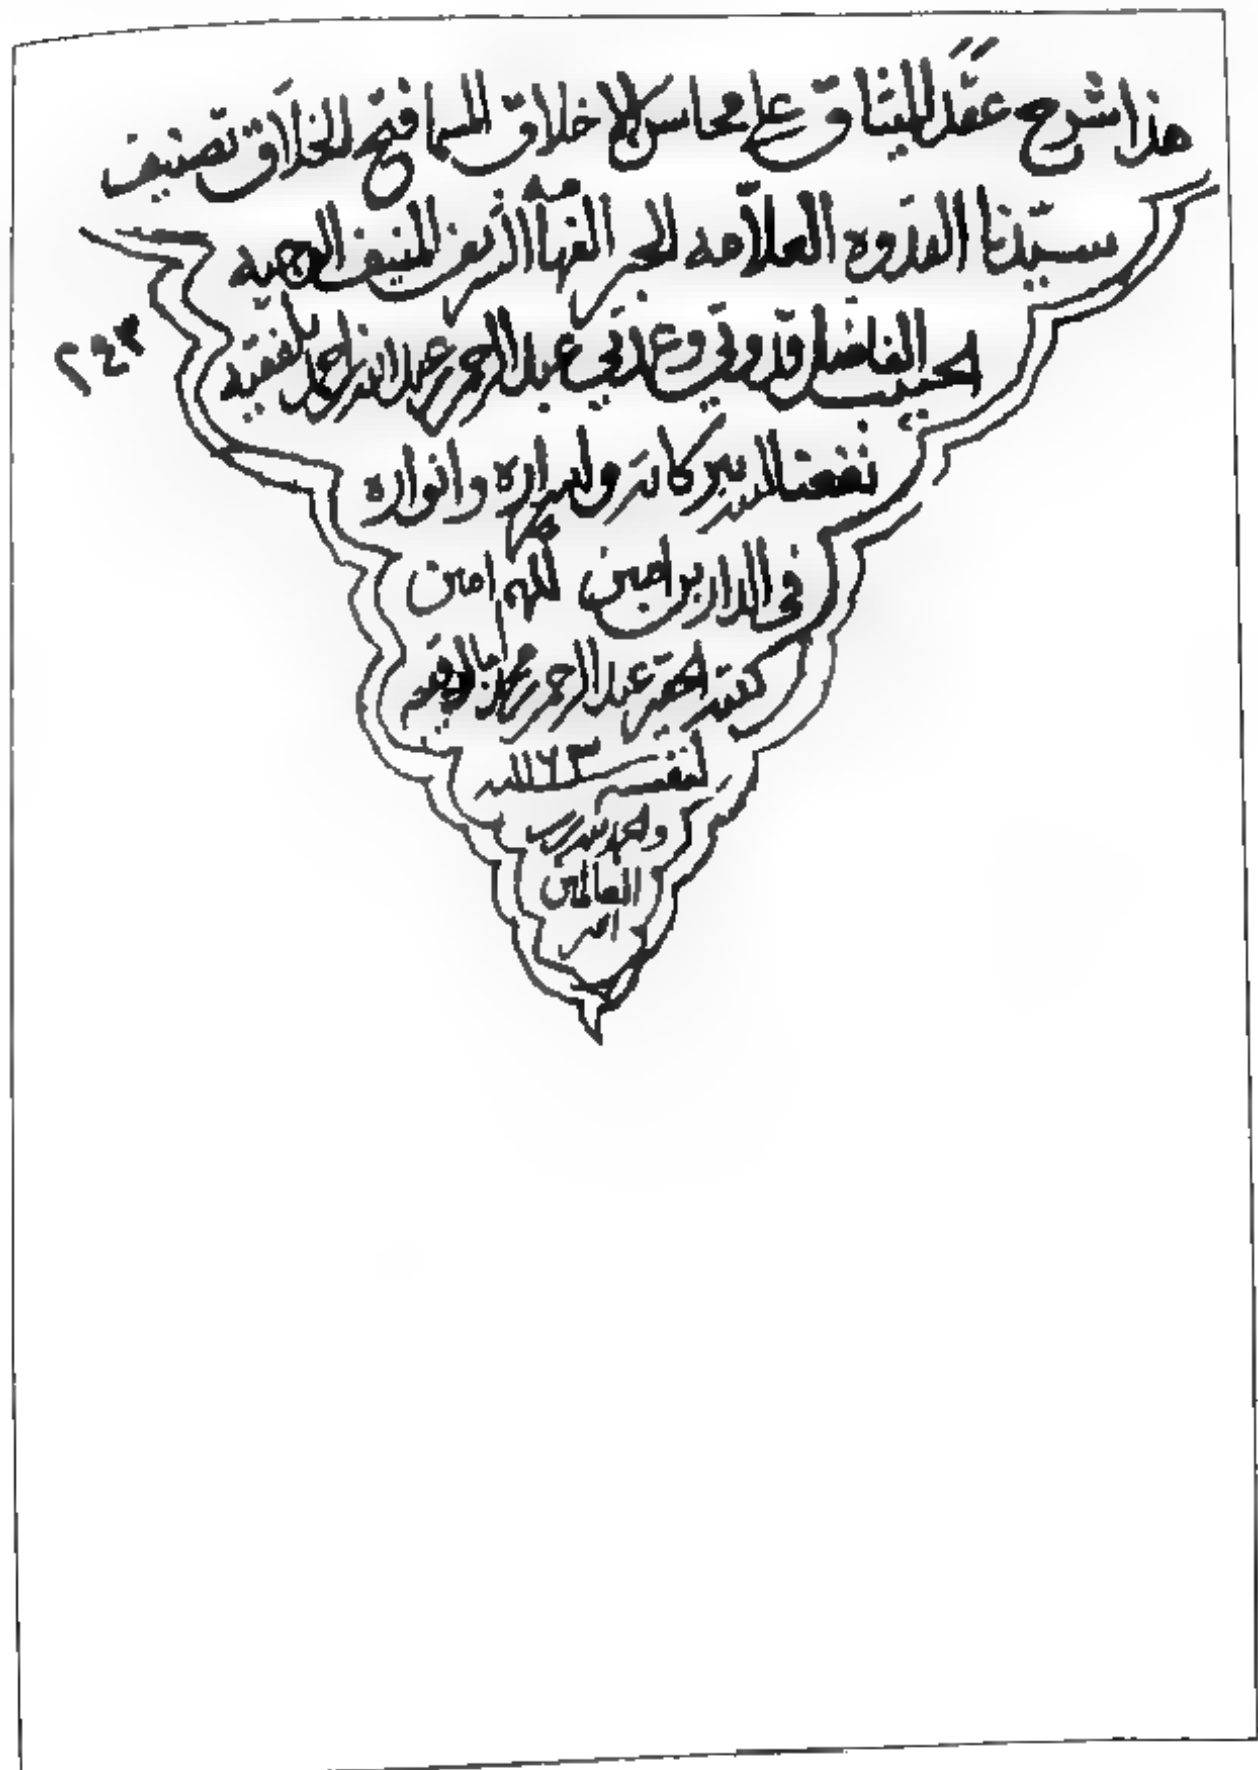 هذا شرح عقد الميثاق على محاسن الاخلاق المسما فتح الخلاق تصنيف
سيدنا القدوه العلامه الحبر الفهامه الشريف المنيف الوجيه
الحبيب الفاضل قدوتي وعمدتي عبد الرحمن بن عبد الله بن احمد بلفقيه
٢٤٣
نفعنا الله ببركاته واسراره وانواره
في الدارين امين اللهم امين
كتبه الحقير عبد الرحمن بن محمد
لنفسه ١١٦٣
والحمد لله رب
العالمين
امين